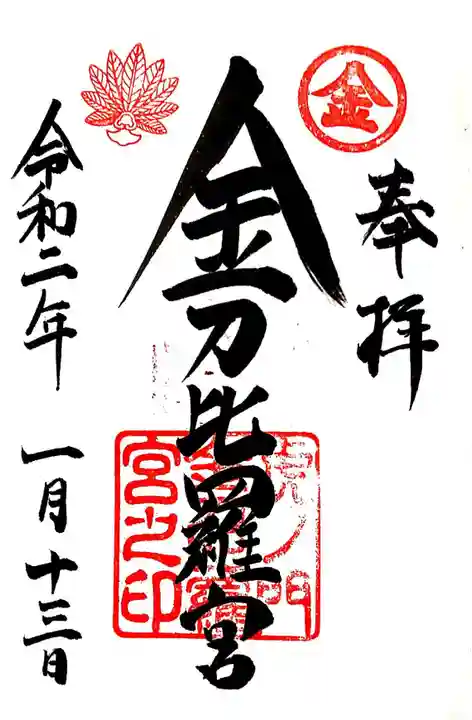 奉拝
金
金刀比羅宮
虎ノ門
金刀比羅
宮之印
令和二年 一月十三日